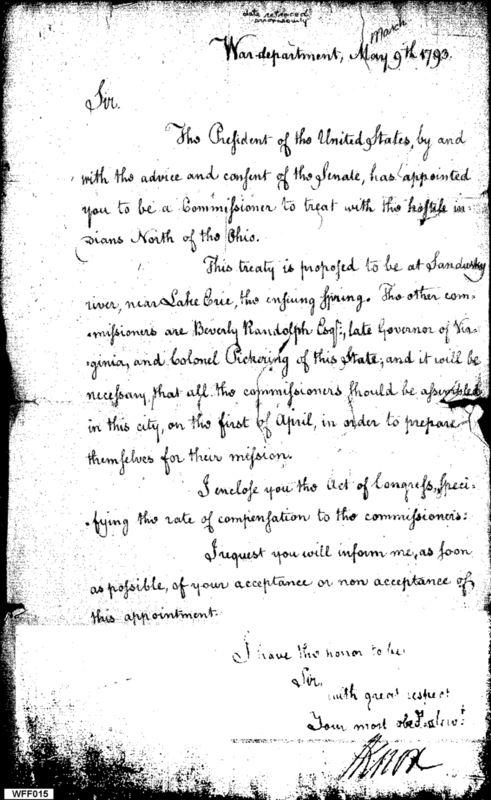 date retraced
erroneously
March
War-department, May 9th 1793.
Sir.
The President of the United States, by and
with the advice and consent of the Senate, has appointed
you to be a Commissioner to treat with the hostile in-
dians North of the Ohio.
This treaty is proposed to be at Sandusky
river, near Lake Erie, the ensuing Spring. The other com-
-missioners are Beverly Randolph Esqr., late Governor of Vir-
-ginia, and Colonel Pickering of this State; and it will be
necessary that all the commissioners should be assembled
in this city, on the first of April, in order to prepare
themselves for their mission.
I enclose you the Act of Congress, speci-
-fying the rate of compensation to the commissioners:
I request you will inform me, as soon
as possible, of your acceptance or non acceptance of
this appointment.
I have the honor to be
Sir,
with great respect
Your most obet. servt.
HKnox
WFF015